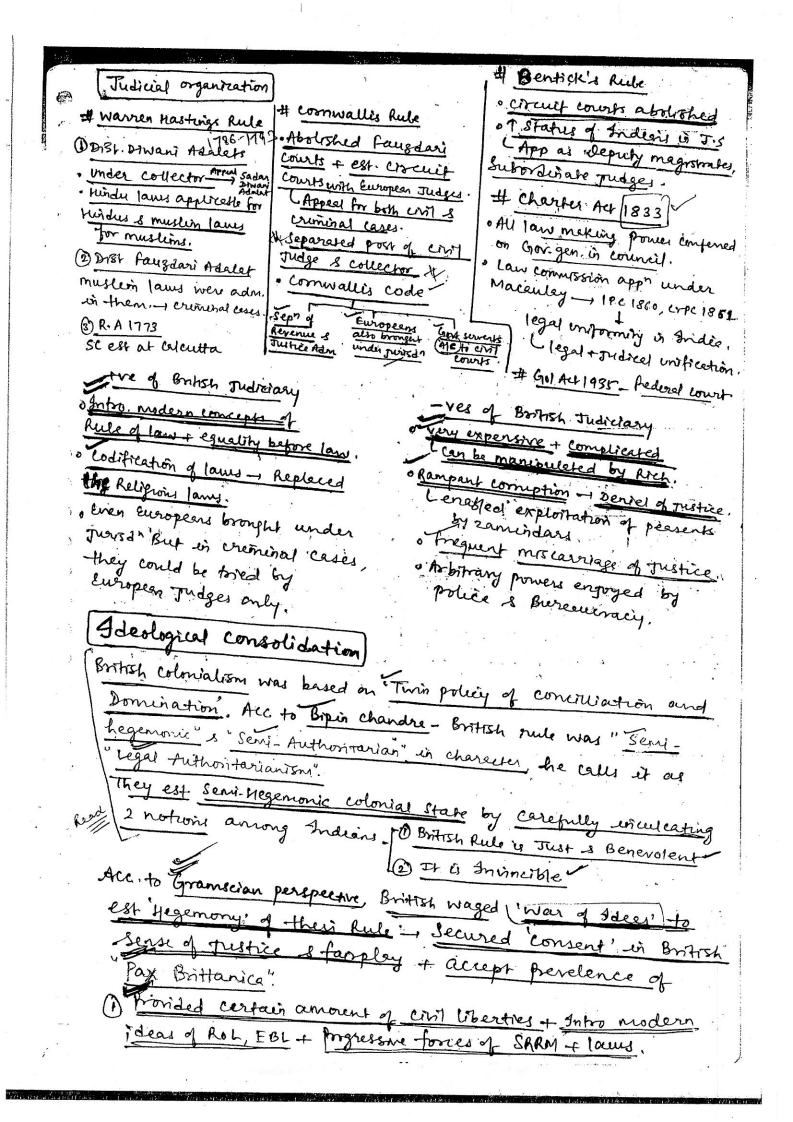 Judicial organization
# Warren Hastings Rule
① Dist. Diwani Adalats
• Under collector → Appeal Sadar
Diwani
Adalat
• Hindu laws applicable for
Hindus & muslim laws
for muslims.
② Dist Fauzdari Adalat
muslim laws were adm.
in them. → criminal cases.
③ R.A 1773
SC est at Calcutta
# Cornwallis Rule
1786-1793
• Abolished Fauzdari
Courts + est. circuit
Courts with European Judges.
↳ Appeal for both civil &
criminal cases.
* Separated post of civil
Judge & collector
• Cornwallis code
Sepn of
Revenue &
Justice Adm
Europeans
also brought
under jursdn
Govt servents
to civil
courts.
# Bentick's Rule
• Circuit courts abolished
• ↑ Status of Indians in J.S
↳ App as Deputy magistrates,
Subordinate Judges.
# Charter Act 1833
• All law making power conferred
on Gov. gen. in council.
• Law commission appn under
Macauley → IPC 1860, CrPC 1862
↓
legal uniformity in India.
↳ legal + Judical unification.
# GoI Act 1935 - Federal court
+ive of British Judiciary
• Intro. modern concepts of
Rule of law + equality before law.
• Codification of laws → Replaced
the Religious laws.
• Even Europeans brought under
jursdn. But in criminal cases,
they could be tried by
European Judges only.
-ves of British Judiciary
• very expensive + complicated
↳ Can be manipulated by Rich.
• Rampant corruption → Deniel of Justice.
↳ enabled exploitation of peasents
by zamindars.
• Frequent miscarriage of Justice.
• Arbitrary powers enjoyed by
police & Bureaucracy.
Ideological consolidation
British colonialism was based on "Twin policy of concilliation and
Domination". Acc to Bipin Chandra - British rule was "Semi-
hegemonic" & "Semi-Authoritarian" in character, he calls it as
"Legal Authoritarianism".
They est Semi-Hegemonic colonial state by carefully inculcating
Read
2 notions among Indians - ① British Rule is Just & Benevolent
② It is Invincible
Acc. to Gramscian perspective, British waged 'War of Ideas' to
est 'Hegemony' of their Rule → Secured 'consent' in British
sense of Justice & fairplay + accept prevelence of
"Pax Brittanica".
① Provided certain amount of civil liberties + Intro modern
ideas of RoL, EBL + progressive forces of SRRM + laws.